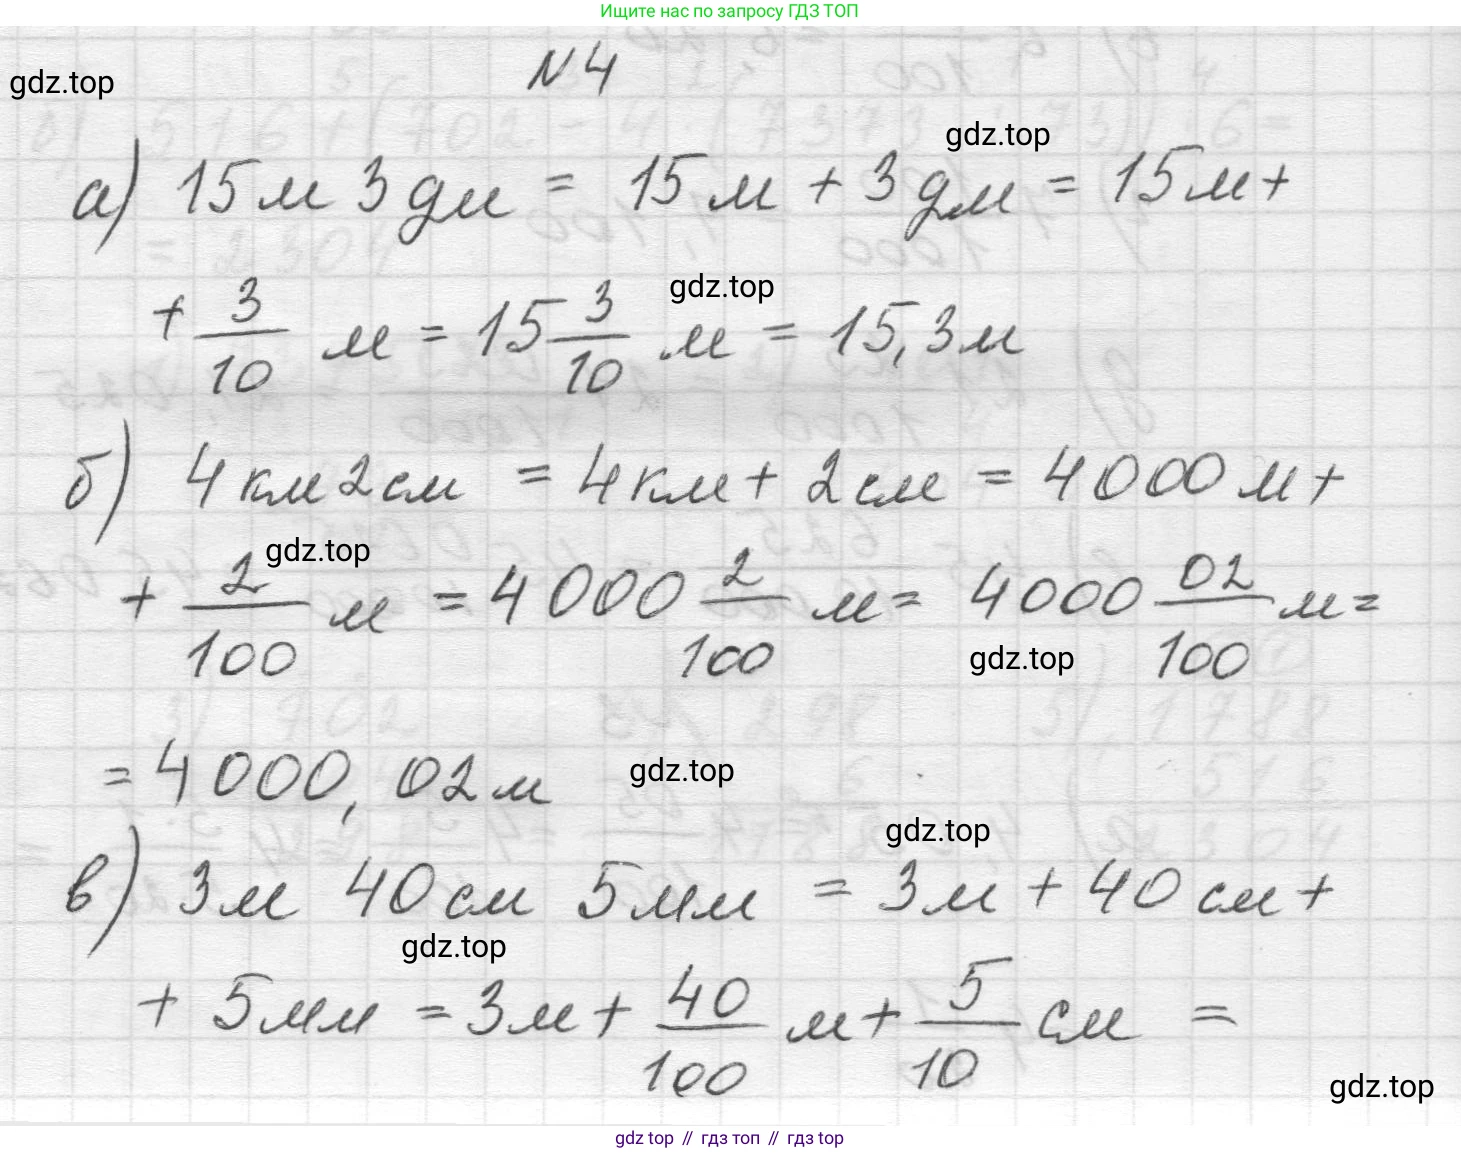 Ищите нас по запросу ГДЗ ТОП
gdz.top
N 4
gdz.top
а) 15 м 3 дм = 15 м + 3 дм = 15 м +
gdz.top
+ 3/10 м = 15 3/10 м = 15,3 м
б) 4 км 2 см = 4 км + 2 см = 4000 м +
gdz.top
+ 2/100 м = 4000 2/100 м = 4000 02/100 м =
gdz.top
= 4000,02 м
gdz.top
gdz.top
в) 3 м 40 см 5 мм = 3 м + 40 см +
gdz.top
+ 5 мм = 3 м + 40/100 м + 5/10 см =
gdz.top
gdz top // гдз топ // гдз top